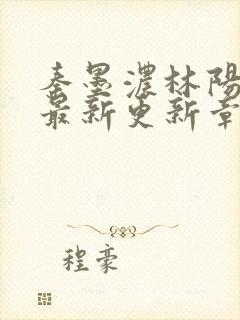 秦墨濃林陽
最新更新章
程豪